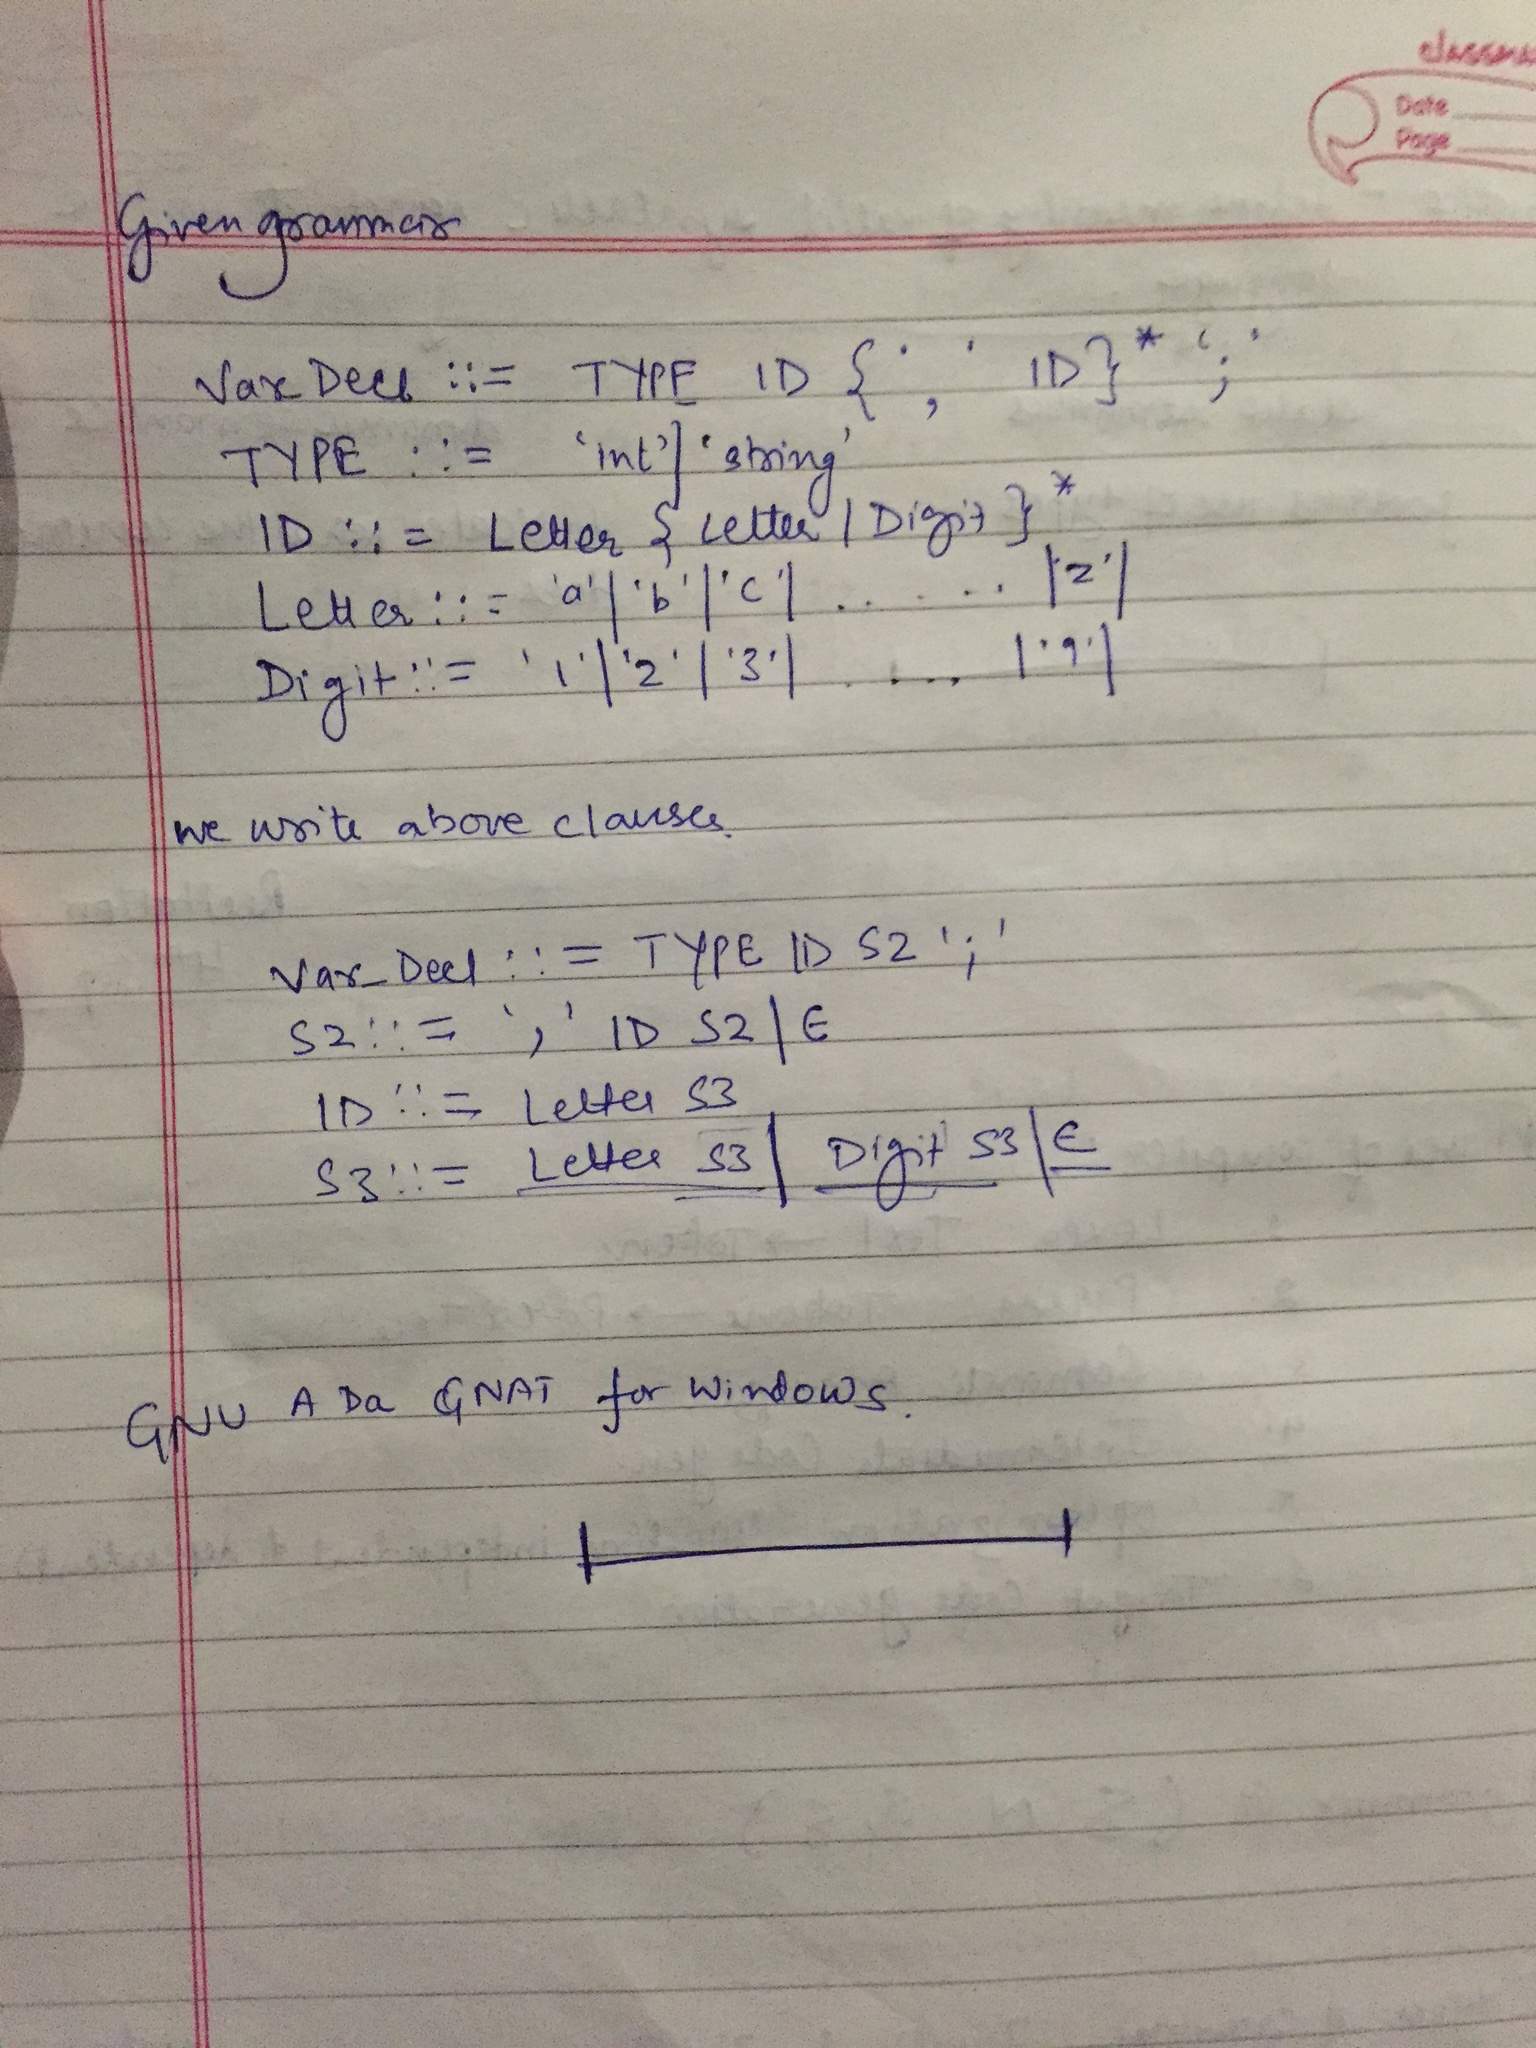 classma
Date
Page
Given grammar
Var Decl ::= TYPE ID {',' ID}* ';'
TYPE ::= 'int'|'string'
ID ::= Letter { Letter | Digit }*
Letter ::= 'a'|'b'|'c'| ...... |'z'|
Digit ::= '1'|'2'|'3'| ..... |'9'|
we write above clauses.
Var_Decl ::= TYPE ID S2 ';'
S2 ::= ',' ID S2 | ∈
ID ::= Letter S3
S3 ::= Letter S3 | Digit S3 | ∈
GNU ADa GNAT for Windows.